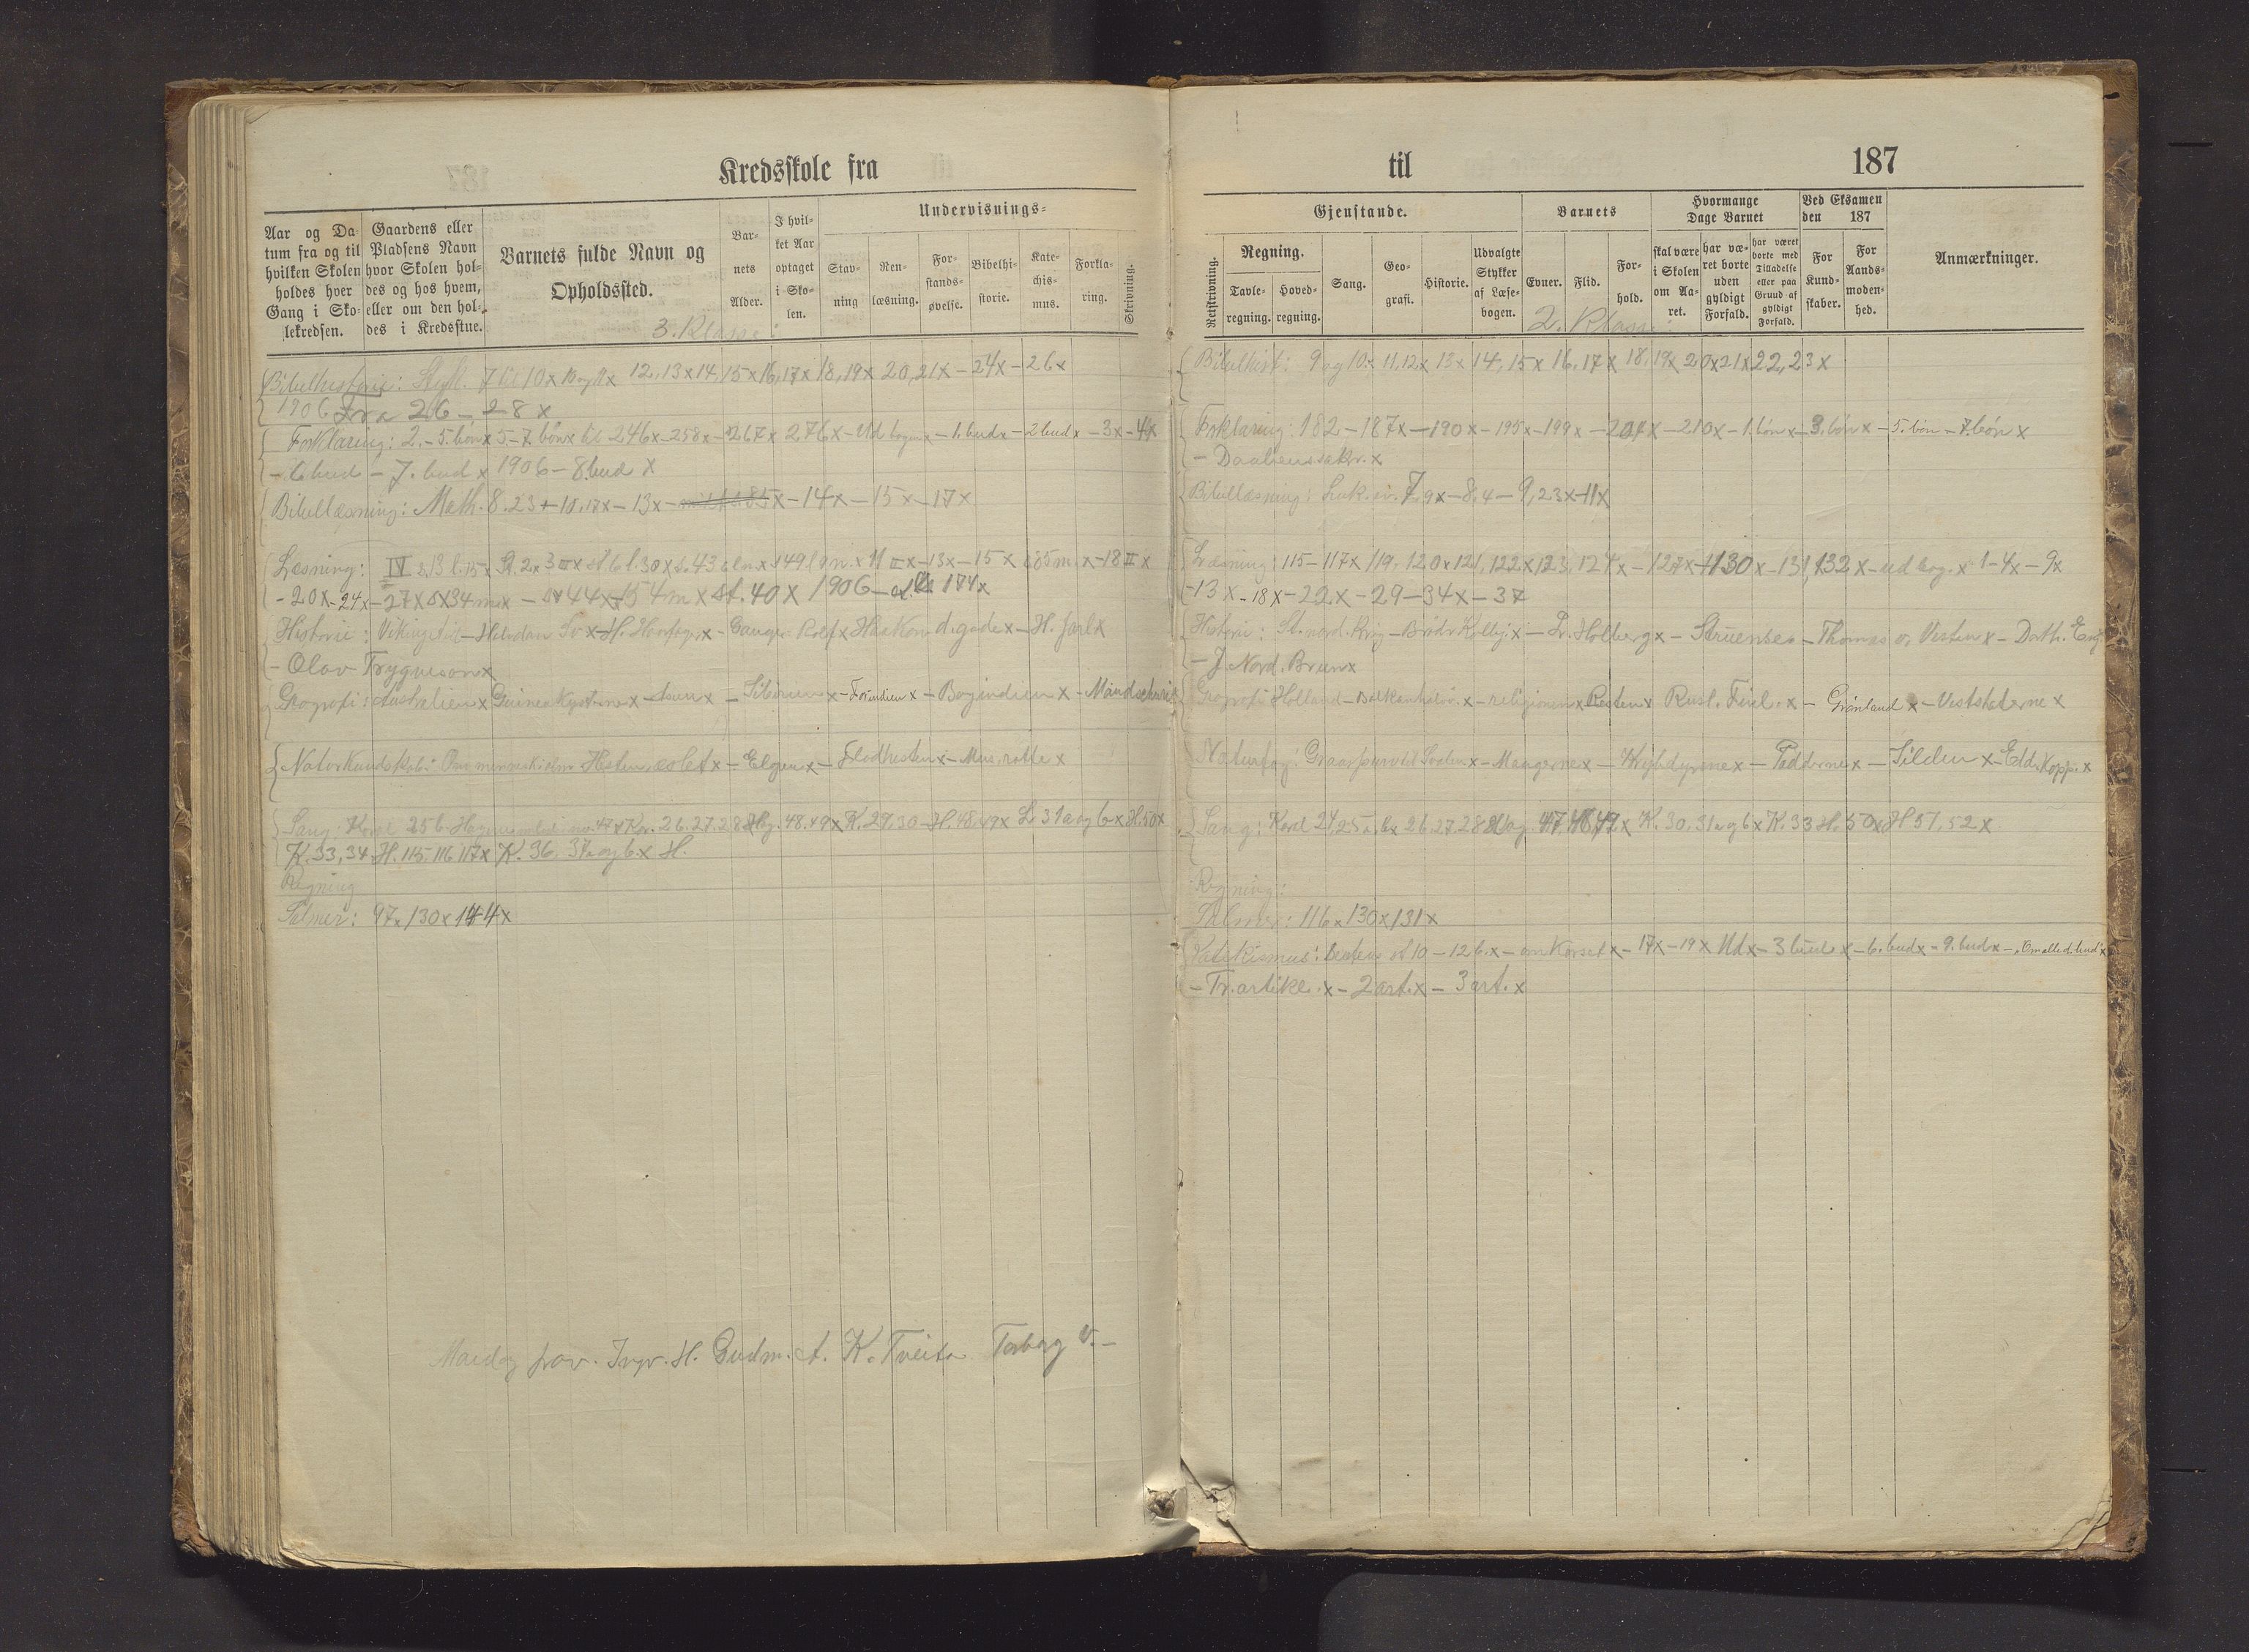 Kredsskole fra
Aar og Da-
tum fra og til
hvilken Skolen
holdes hver
Gang i Sko-
lekredsen.
Gaardens eller
Pladsens Navn
hvor Skolen hol-
des og hos hvem,
eller om den hol-
des i Kredsstue.
Barnets fulde Navn og
Opholdssted.
Bar-
nets
Alder.
I hvil-
ket Aar
optaget
i Sko-
len.
Undervisnings-
Stav-
ning
Ren-
læsning.
For-
stands-
øvelse.
Bibelhi-
storie.
Kate-
chis-
mus.
Forkla-
ring.
Skrivning.
3. Klasse:
Bibelhistorie: 7 til 10x 12, 13x 14, 15x 16, 17x 18, 19x 20, 21x - 24x - 26x
1906 Fra 26 - 28 x
Forklaring: 2. - 5. bøn x 5 - 7. bøn x til 246x - 258x - 267x 276x - ud bogen x - 1. bud x - 2 bud x - 3x - 4x
- 6 bud - 7. bud x 1906 - 8 bud x
Bibellæsning: Math. 8.23 + 10,17x - 13x - 14x - 15x - 17x
Læsning: IV s. 13 l. 15x St. 2x 3 III x St. 6 l. 30x s. 43 x 149 x 11 II x - 13x - 15x - 18 II x
- 20x - 24x - 27x 34 m x - 44x 154 m x St. 40 x 1906 - 174x
Historie: Vikinget. - Halvdan Sv x - H. Haarfagr. x - Ganger Rolf x Haakon d. gode x - H. Jarl x
- Olav Trygvesson x
Geografi: Australien x Guineakysten x - x - Sibirien x - Forindien x - Bagindien x - Mandschuri
Naturkundskab: Hesten, æslet x - Elgen x - Flodhesten x - Mus, rotte x
Sang: Koral 25 b. 47x Kor. 26. 27. 28 48. 49x K. 29. 30 - H. 48. 49x L 31 a og b x H. 50x
K. 33, 34 H. 115. 116 117x K. 36, 37 a og b. x H.
Regning
Salmer: 97x 130x 144x
Tveita Torborg
til
187
Gjenstande.
Retskrivning.
Regning.
Tavle-
regning.
Hoved-
regning.
Sang.
Geo-
grafi.
Historie.
Udvalgte
Stykker
af Læse-
bogen.
Barnets
Evner.
Flid.
For-
hold.
Hvormange
Dage Barnet
skal være
i Skolen
om Aa-
ret.
har væ-
ret borte
uden
gyldigt
Forfald.
har været
borte med
Tilladelse
eller paa
Grund af
gyldigt
Forfald.
Ved Eksamen
den 187
For
Kund-
skaber.
For
Aands-
moden-
hed.
Anmærkninger.
2. Klasse:
Bibelhist: 9 og 10x 11, 12x 13x 14, 15x 16, 17x 18, 19x 20x 21x 22, 23x
Forklaring: 182 - 187x - 190x - 195x - 199x - 207x - 210x - 1. bøn x - 3. bøn x - 5. bøn - 7. bøn x
- Daabens sakr. x
Bibellæsning: Luk. ev. 7,9x - 8,4 - 9,23x - 11x
Læsning: 115 - 117x 119, 120x 121, 122x 123, 124x - 127x - 130x - 131, 132x - ud bog. x 1 - 4x - 9x
- 13x - 18x - 22x - 29 - 34x - 37
Historie: St. nord. krig - x - L. Holberg x - Struensee - Thomas v. Vesten x - Doth. Eng
- J. Nord. Brun x
Geografi: Holland - Balkanhalvø. x - religionen x Resten x Rusl. Finl. x - Grønland x - Veststaterne x
Naturfag: x - Maagerne x - Krybdyrene x - Padderne x - Silden x - Edderkopp. x
Sang: Koral 24, 25 a, b x 26, 27, 28 47, 48, 49x K. 30, 31 a og b x K. 33 H. 50x H 51, 52x
Regning:
Salmer: 116x 130x 131x
Katekismus: 10 - 12 b. x - om Korset x - 17x - 19x Ud x - 3 bud x - 6. bud x - 9. bud x - Om alle d. bud x
- Tr. artikl. x - 2 art. x - 3 art. x